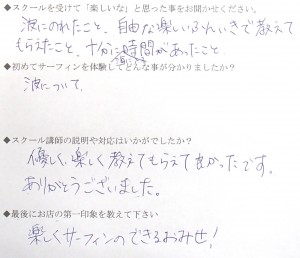 ◆スクールを受けて「楽しいな」と思った事をお聞かせください。
波にのれたこと、自由な楽しいふんいきで教えて
もらえたこと、十分に時間があったこと
◆初めてサーフィンを体験してどんな事が分かりましたか？
波について、
◆スクール講師の説明や対応はいかがでしたか？
優しく、楽しく教えてもらえてよかったです。
ありがとうございました。
◆最後にお店の第一印象を教えて下さい
楽しくサーフィンのできるおみせ！